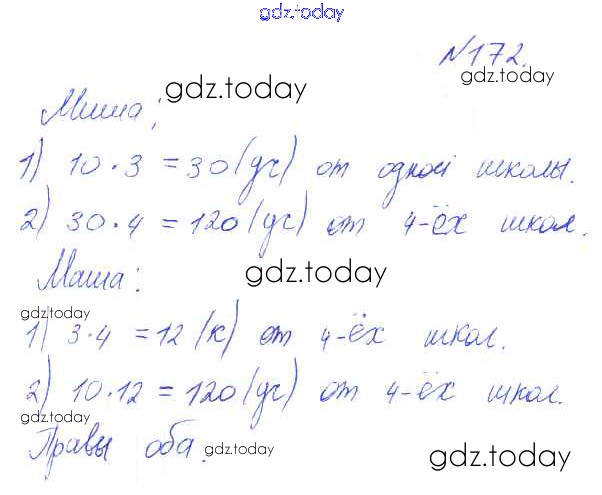 gdz.today
№172.
gdz.today
Миша;
gdz.today
1) 10·3 = 30 (уч) от одной школы.
2) 30·4 = 120 (уч) от 4-ёх школ.
Маша:
gdz.today
gdz.today
1) 3·4 = 12 (к) от 4-ёх школ.
2) 10·12 = 120 (уч) от 4-ёх школ.
gdz.today
gdz.today
Правы оба.
gdz.today
gdz.today